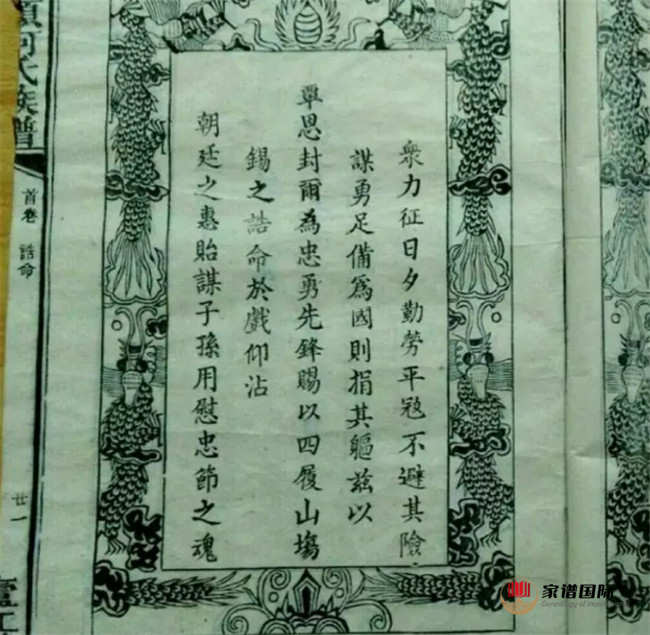 衆力征日夕勤勞平寇不避其險
謀勇足備爲國則捐其軀兹以
覃恩封爾為忠勇先鋒賜以四履山塲
錫之誥命於戲仰沾
朝廷之惠貽謀子孫用慰忠節之魂
氏族譜
首卷
誥命
廿一
家谱国际